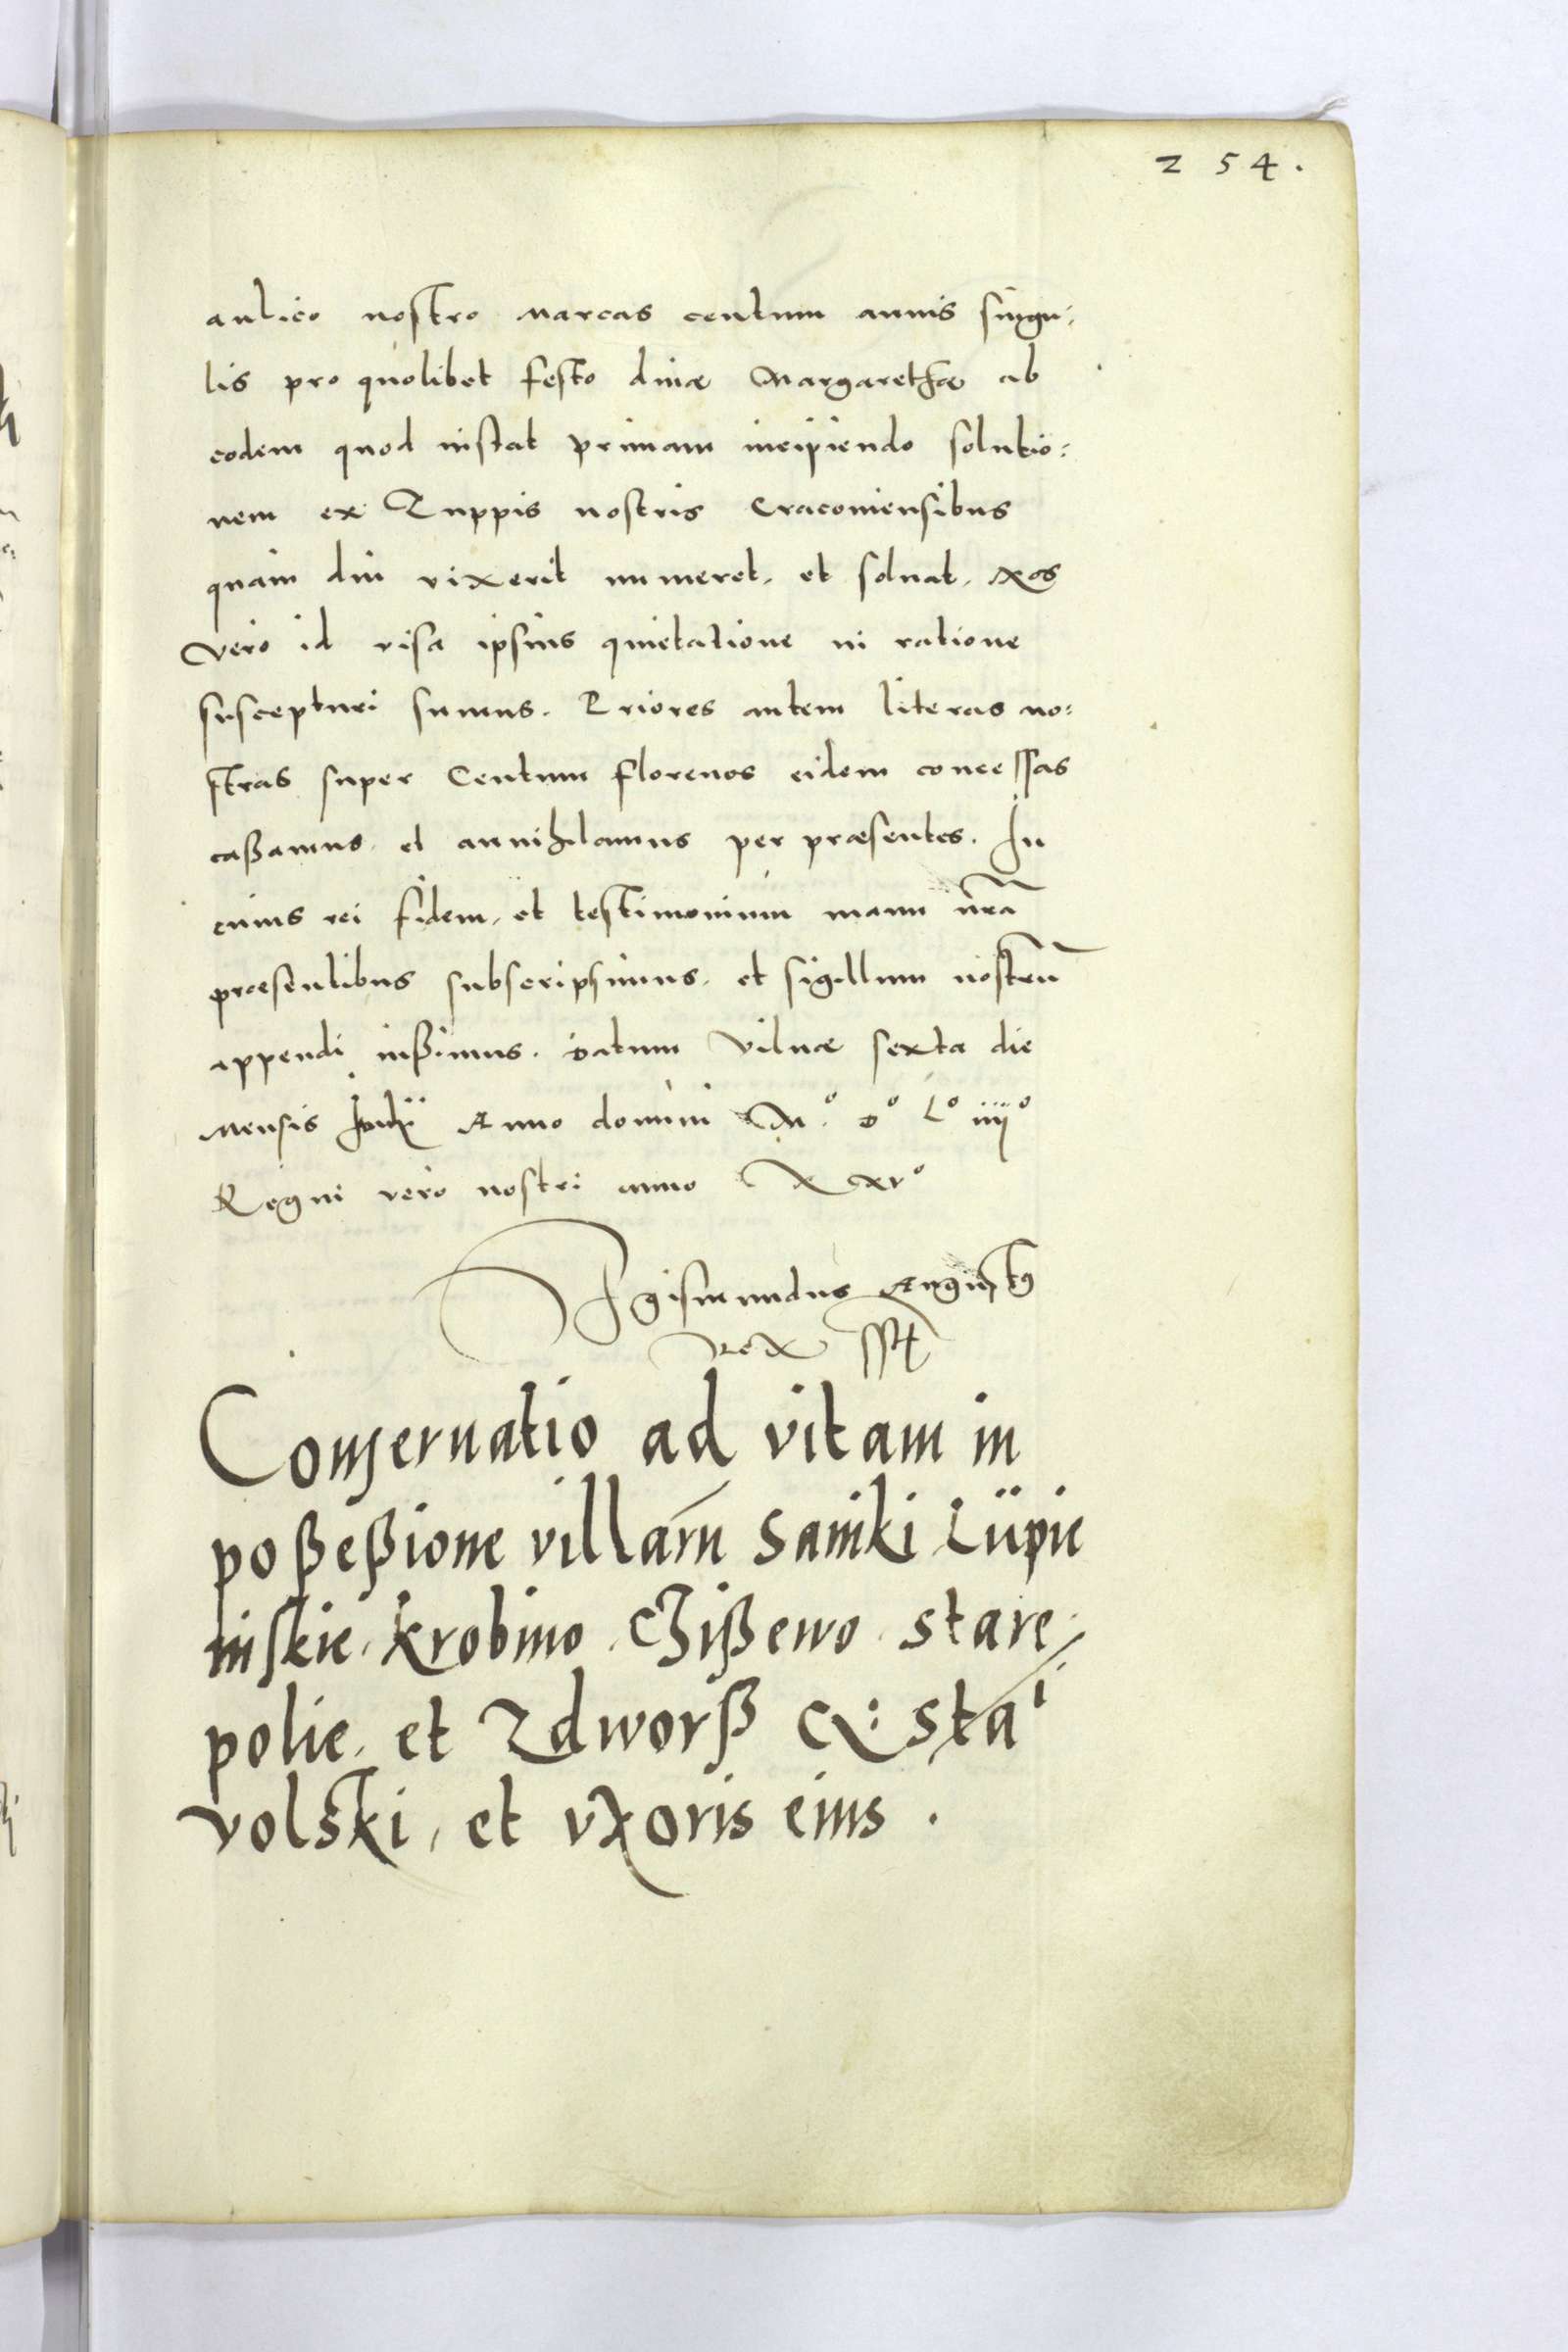 254.
aulico nostro Marcas centum annis singu:
lis pro quolibet festo diuæ Margarethæ ab
eodem quod instat primam incipiendo solutio:
nem ex Zuppis nostris Cracouiensibus
quam diu vixerit numeret, et soluat. Nos
vero id visa ipsius quietatione in ratione
suscepturi sumus. Priores autem literas no:
stras super Centum florenos eidem concessas
caßamus, et annihilamus per præsentes. In
cuius rei fidem, et testimonium manu nr̃a
præsentibus subscripsimus, et sigillum nostrũ
appendi iußimus. Datum Vilnæ sexta die
Mensis Julii Anno domini M° D° L° iiii°
Regni vero nostri anno XXV°
Sigismundus Augustꝰ
Rex sst
Conseruatio ad vitam in
poßeßione villarũ Saniki Lüpie
niskie, Krobino, Chißewo, Stare,
polie, et Zdworß G: Sta
volski, et vxoris eius.